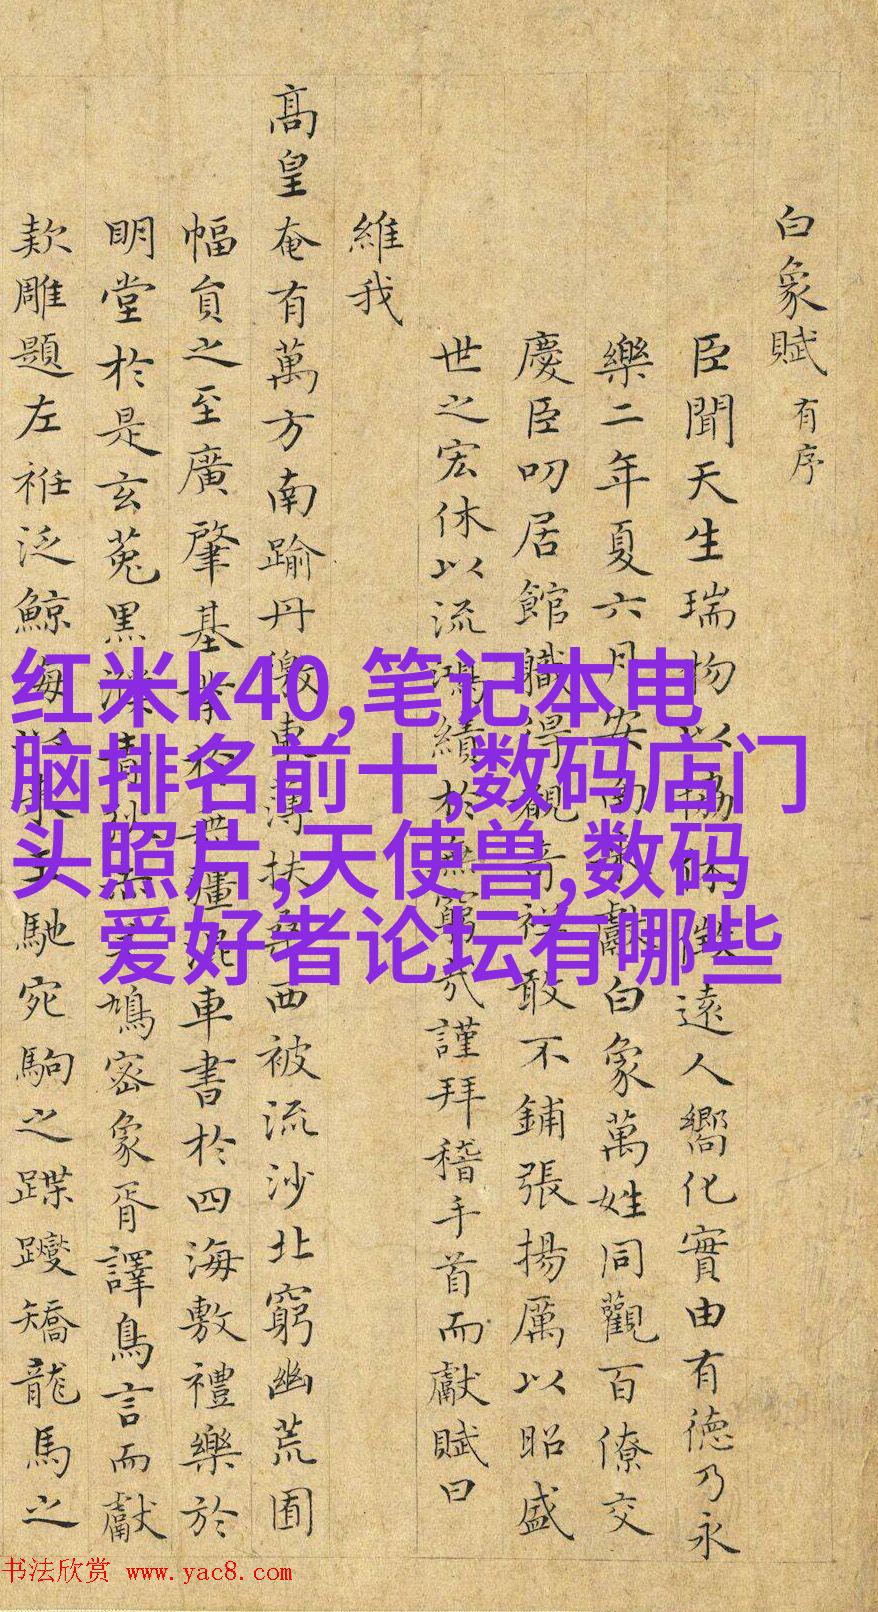 白象賦 有序
臣聞天生瑞物以協休徵遠人嚮化實由有德乃永
樂二年夏六月安南獻白象萬姓同觀百僚交
慶臣叨居館職得觀奇祥敢不鋪張揚厲以昭盛
世之宏休以流鴻績於無窮謹拜稽手首而獻賦曰
維我
高皇奄有萬方南踰丹徼東薄扶桑西被流沙北窮幽荒圍
幅員之至廣肇基無疆混車書於四海敷禮樂於
明堂於是玄菟黑濮青鳩密象胥譯鳥言而獻
款雕題左衽泛鯨海以來王馳宛駒之蹀躞矯龍馬之
红米k40,笔记本电
脑排名前十,数码店门
头照片,天使兽,数码
爱好者论坛有哪些
书法欣赏 www.yac8.com